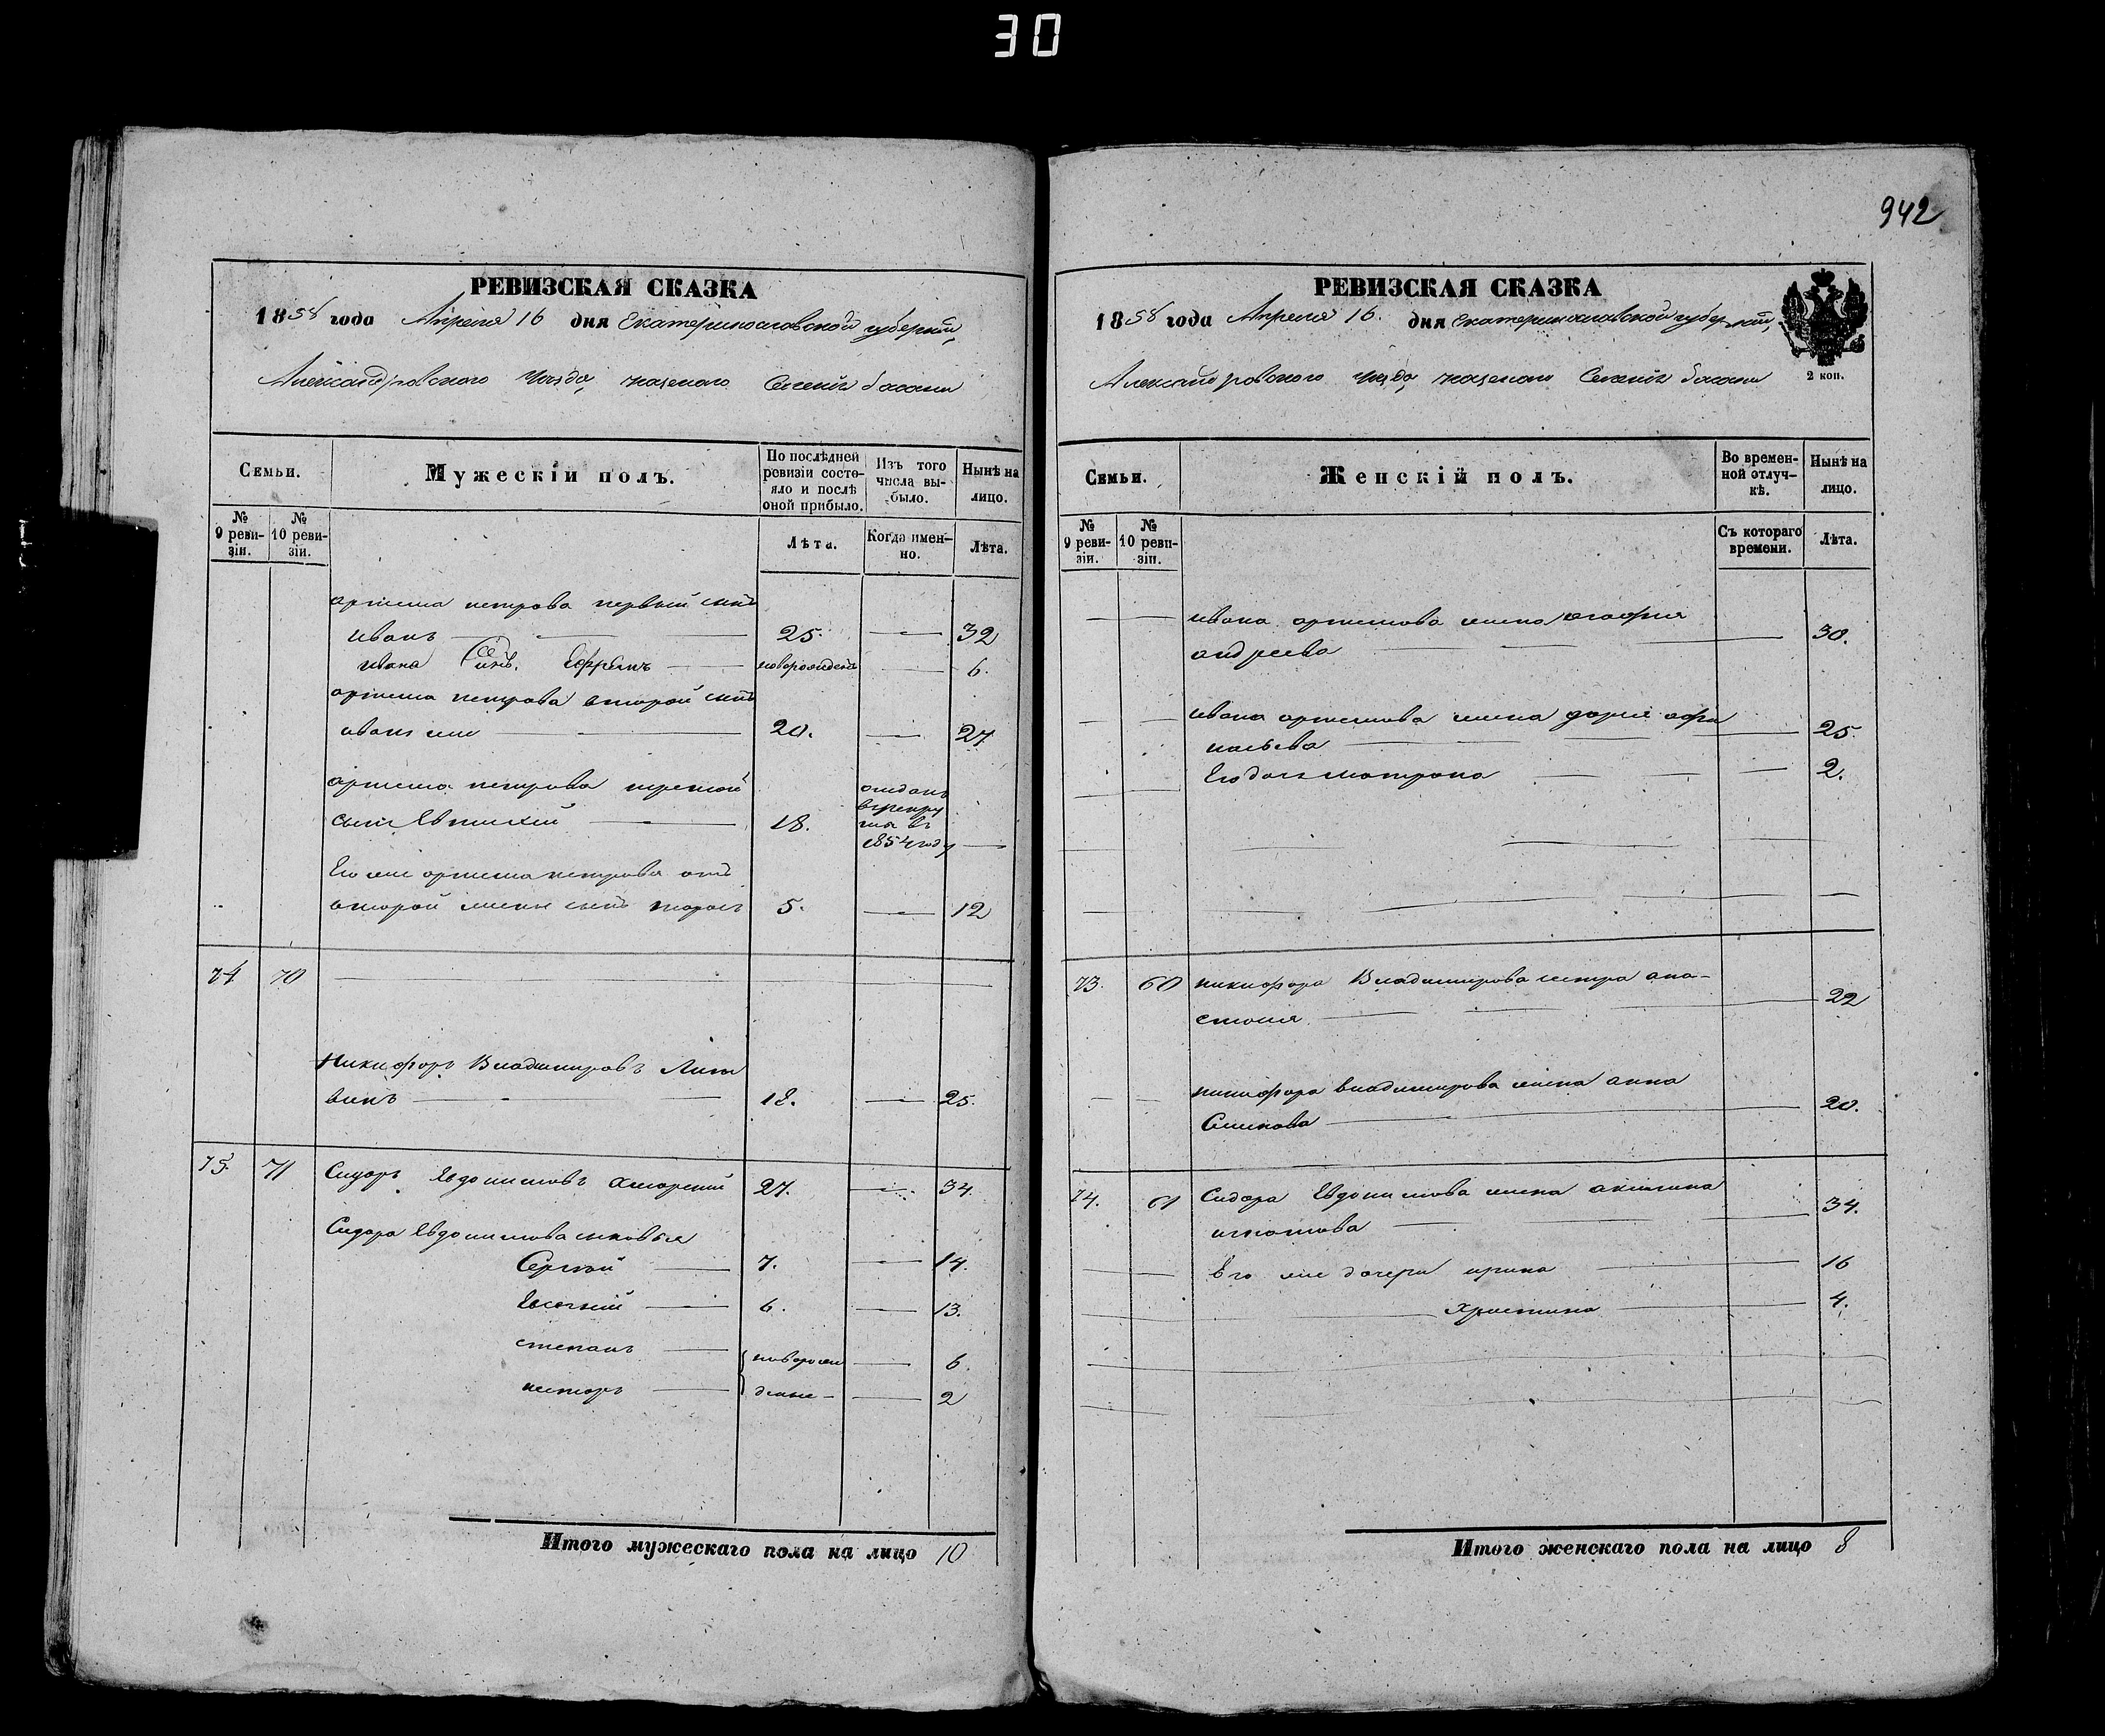 30
РЕВИЗСКАЯ СКАЗКА
1858 года Апреля 16 дня Екатеринославской губерніи,
Александровского уезда, казеного Селенія басани
Семьи.
Мужескій полъ.
По послѣдней ревизіи состо-
яло и послѣ
оной прибыло.
Изъ того
числа вы-
было.
Нынѣ на
лицо.
№
9 реви-
зіи.
№
10 реви-
зіи.
Лѣта.
Когда имен-
но.
Лѣта.
артема петрова первый сынъ
иванъ 25. 32
ивана Сынъ. Ефремъ новорожденъ 6.
артема петрова второй сынъ
иванъ же 20. 27
артема петрова третий
сынъ Евтихий 18. отданъ в рекруты въ 1854 году
Его же артема петрова отъ
второй жены сынъ тарасъ 5. 12
74 70
Никифоръ Владимировъ Лит
винъ 18. 25.
75. 71 Сидоръ Евдокимовъ 27. 34.
Сидора Евдокимова сыновья
Сергѣй 7. 14.
Евсегнѣй 6. 13.
степанъ 6.
несторъ новорожденые 2
Итого мужескаго пола на лицо 10
942
РЕВИЗСКАЯ СКАЗКА
1858 года Апреля 16. дня Екатеринославской губерніи,
Александровского уезда, казеного Селенія басани
2 коп.
Семьи.
Женскій полъ.
Во времен-
ной отлуч-
кѣ.
Нынѣ на
лицо.
№
9 реви-
зіи.
№
10 реви-
зіи.
Съ котораго
времени.
Лѣта.
ивана артемова жена агафия
андреева 30.
ивана артемова жена дария афа
насьева 25.
Его дочь матрона 2.
73. 60 никифора Владимирова сестра ана-
стасия 22
никифора владимирова жена анна
Семенова 20.
74. 61 Сидора Евдокимова жена акилина
игнатова 34.
Его же дочери ирина 16
христина 4.
Итого женскаго пола на лицо 8